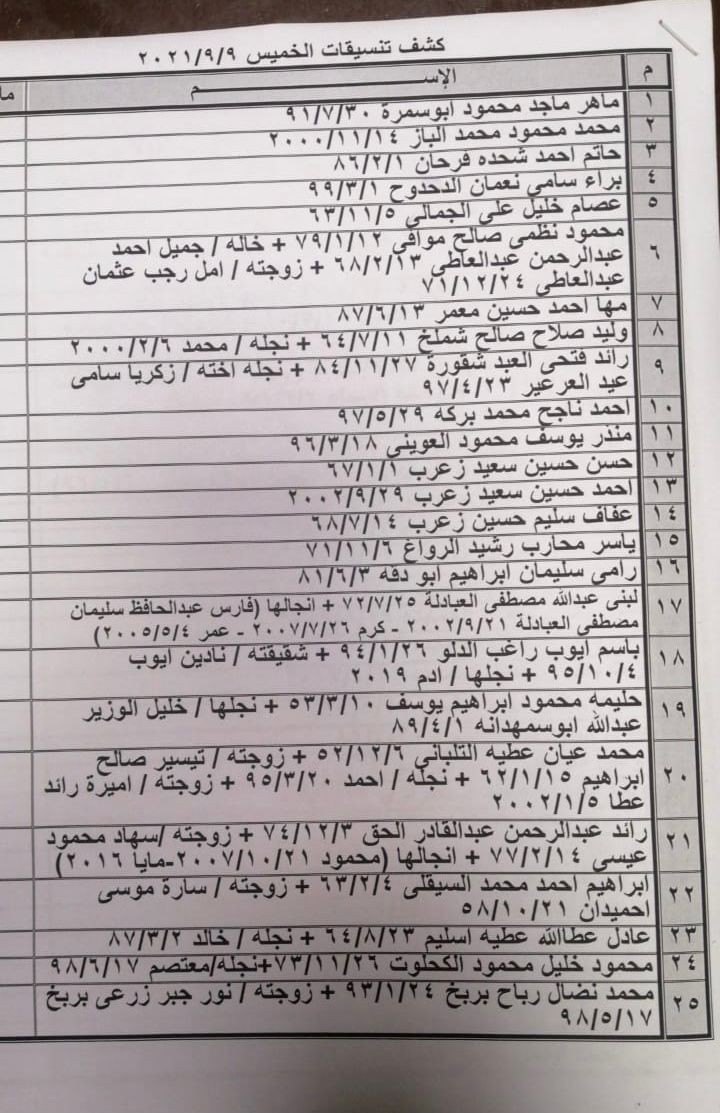 كشف تنسيقات الخميس ٢٠٢١/٩/٩
م الإســـــــم
١ ماهر ماجد محمود ابوسمرة ٩١/٧/٣٠
٢ محمد محمود محمد الباز ٢٠٠٠/١١/١٤
٣ حاتم احمد شحده فرحان ٨٦/٢/١
٤ براء سامى نعمان الدحدوح ٩٩/٣/١
٥ عصام خليل على الجمالى ٦٣/١١/٥
٦ محمود نظمى صالح موافى ٧٩/١/١٢ + خاله / جميل احمد
عبدالرحمن عبدالعاطى ٦٨/٢/١٣ + زوجته / امل رجب عثمان
عبدالعاطى ٧١/١٢/٢٤
٧ مها احمد حسين معمر ٨٧/٦/١٣
٨ وليد صلاح صالح شملخ ٦٤/٧/١١ + نجله / محمد ٢٠٠٠/٢/٦
٩ رائد فتحى العبد شقورة ٨٤/١١/٢٧ + نجله اخته / زكريا سامى
عيد العرعير ٩٧/٤/٢٣
١٠ احمد ناجح محمد بركه ٩٧/٥/٢٩
١١ منذر يوسف محمود العوينى ٩٦/٣/١٨
١٢ حسن حسين سعيد زعرب ٦٧/١/١
١٣ احمد حسين سعيد زعرب ٢٠٠٢/٩/٢٩
١٤ عفاف سليم حسين زعرب ٦٨/٧/١٤
١٥ ياسر محارب رشيد الرواغ ٧١/١١/٦
١٦ رامى سليمان ابراهيم ابو دقه ٨١/٦/٣
١٧ لبنى عبدالله مصطفى العبادلة ٧٢/٧/٢٥ + انجالها (فارس عبدالحافظ سليمان
مصطفى العبادلة ٢٠٠٢/٩/٢١ - كرم ٢٠٠٧/٧/٢٦ - عمر ٢٠٠٥/٥/٤)
١٨ باسم ايوب راغب الدلو ٩٤/١/٢٦ + شقيقته / نادين ايوب
٩٥/١٠/٤ + نجلها / ادم ٢٠١٩
١٩ حليمه محمود ابراهيم يوسف ٥٣/٣/١٠ + نجلها / خليل الوزير
عبدالله ابوسمهدانه ٨٩/٤/١
٢٠ محمد عيان عطيه التلبانى ٥٢/١٢/٦ + زوجته / تيسير صالح
ابراهيم ٦٢/١/١٥ + نجله / احمد ٩٥/٣/٢٠ + زوجته / اميرة رائد
عطا ٢٠٠٢/١/٥
٢١ رائد عبدالرحمن عبدالقادر الحق ٧٤/١٢/٣ + زوجته /سهاد محمود
عيسى ٧٧/٢/١٤ + انجالها (محمود ٢٠٠٧/١٠/٢١-مايا ٢٠١٦)
٢٢ ابراهيم احمد محمد السيقلى ٦٣/٢/٤ + زوجته / سارة موسى
احميدان ٥٨/١٠/٢١
٢٣ عادل عطاالله عطيه اسليم ٦٤/٨/٢٣ + نجله / خالد ٨٧/٣/٢
٢٤ محمود خليل محمود الكحلوت ٧٣/١١/٢٦+نجله/معتصم ٩٨/٦/١٧
٢٥ محمد نضال رباح بربخ ٩٣/١/٢٤ + زوجته / نور جبر زرعى بربخ
٩٨/٥/١٧